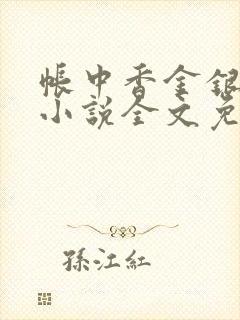 帳中香金銀
小說全文免
孫江紅